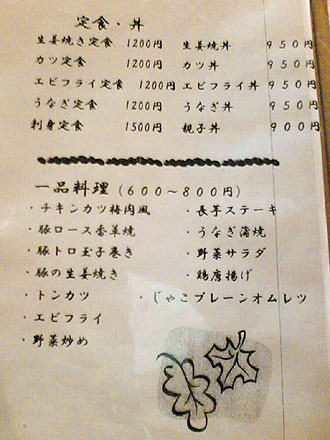 定食・丼
生姜焼き定食 1200円 生姜丼 950円
カツ定食 1200円 カツ丼 950円
エビフライ定食 1200円 エビフライ丼 950円
うなぎ定食 1200円 うなぎ丼 950円
刺身定食 1500円 親子丼 900円
一品料理(600～800円)
・チキンカツ梅肉風 ・長芋ステーキ
・豚ロース香草焼 ・うなぎ蒲焼
・豚トロ玉子巻き ・野菜サラダ
・豚の生姜焼き ・鶏唐揚げ
・トンカツ ・じゃこプレーンオムレツ
・エビフライ
・野菜炒め